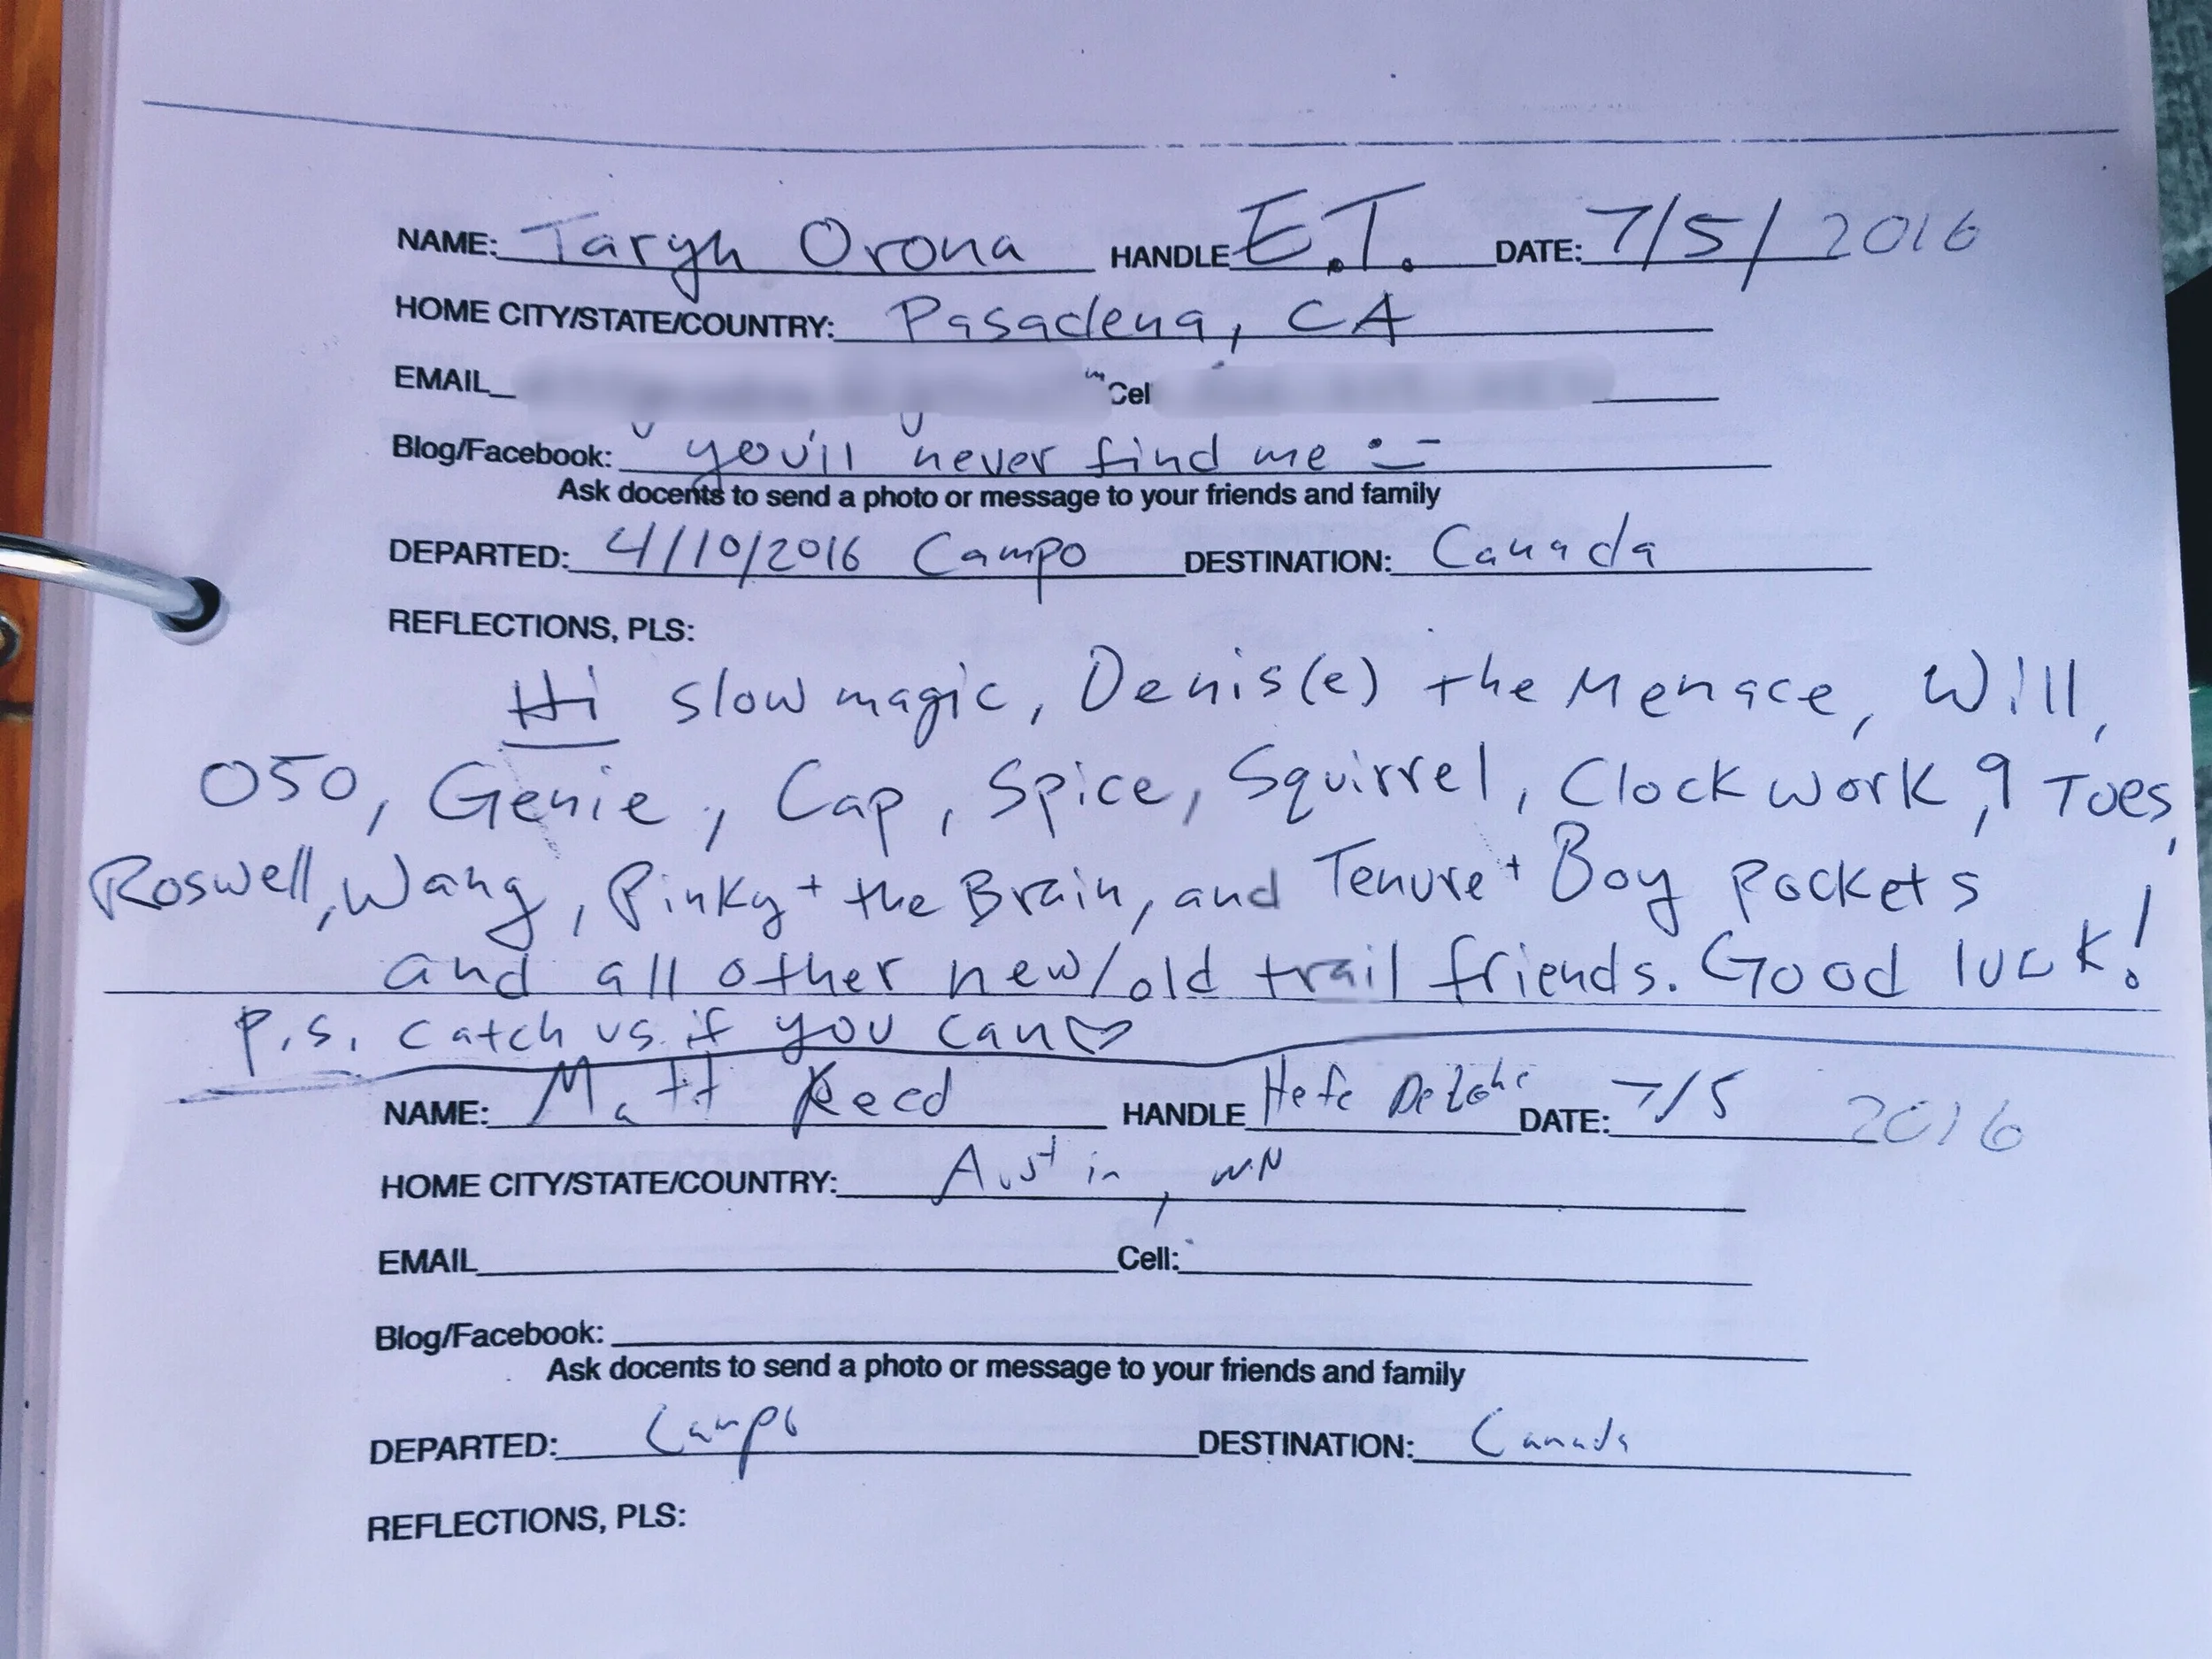 NAME: Taryn Orona HANDLE E.T. DATE: 7/5/2016
HOME CITY/STATE/COUNTRY: Pasadena, CA
EMAIL Cel
Blog/Facebook: you'll never find me
Ask docents to send a photo or message to your friends and family
DEPARTED: 4/10/2016 Campo DESTINATION: Canada
REFLECTIONS, PLS:
Hi slow magic, Denis(e) the Menace, Will,
OSO, Genie, Cap, Spice, Squirrel, Clockwork, 9 Toes,
Roswell, Wang, Pinky + the Brain, and Tenure + Boy Pockets
and all other new/old trail friends. Good luck!
P.S. catch us if you can ♡
NAME: Matt Reed HANDLE Hefe DATE: 7/5 2016
HOME CITY/STATE/COUNTRY: Austin,
EMAIL Cell:
Blog/Facebook:
Ask docents to send a photo or message to your friends and family
DEPARTED: Campo DESTINATION: Canada
REFLECTIONS, PLS: